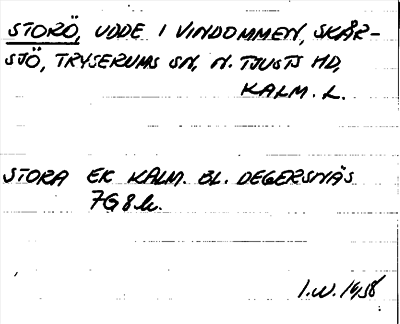 STORÖ, UDDE I VINDOMMEN, SKÅR-
SJÖ, TRYSERUMS SN, N. TJUSTS HD,
KALM. L.
STORA EK KALM. BL. DEGERSNÄS
7G8h.
I.W. 1958